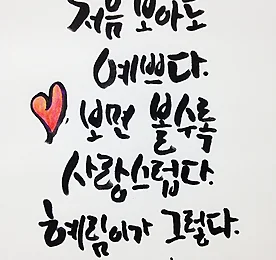 처음 보아도
예쁘다.
보면 볼수록
사랑스럽다.
혜림이가 그렇다.